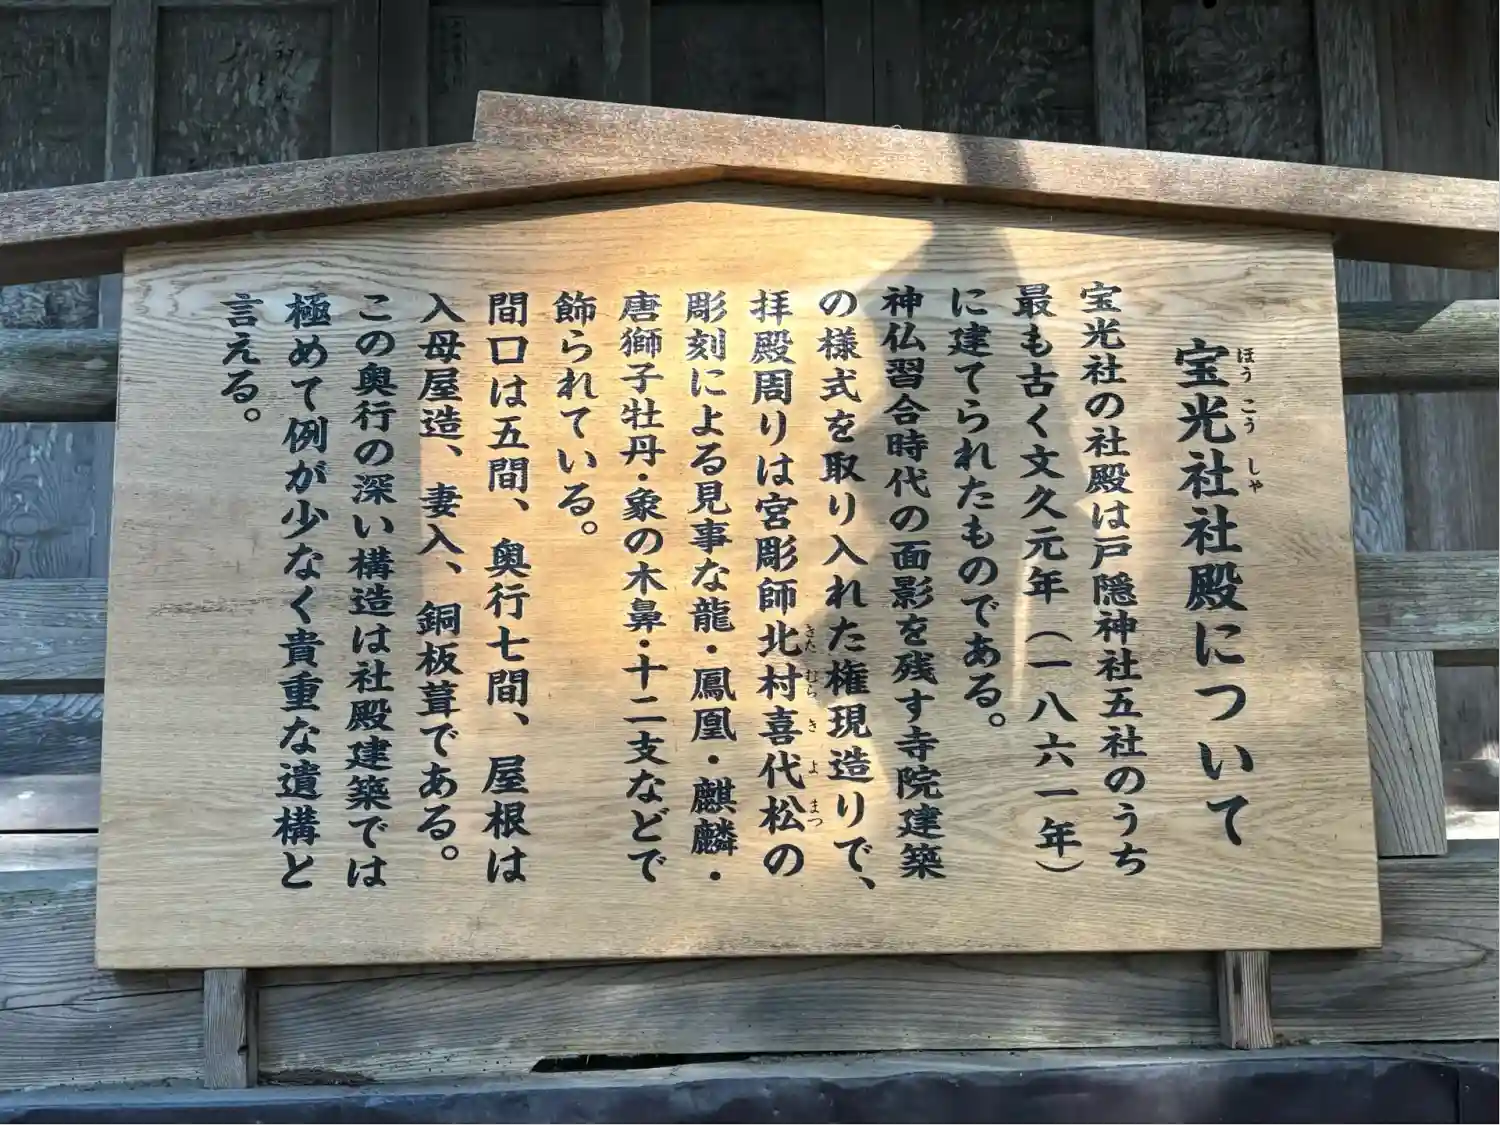 宝光社社殿について
ほうこうしや
宝光社の社殿は戸隠神社五社のうち
最も古く文久元年（一八六一年）
に建てられたものである。
神仏習合時代の面影を残す寺院建築
の様式を取り入れた権現造りで、
拝殿周りは宮彫師北村喜代松の
きたむらきよまつ
彫刻による見事な龍・鳳凰・麒麟・
唐獅子牡丹・象の木鼻・十二支などで
飾られている。
間口は五間、奥行七間、屋根は
入母屋造、妻入、銅板葺である。
この奥行の深い構造は社殿建築では
極めて例が少なく貴重な遺構と
言える。